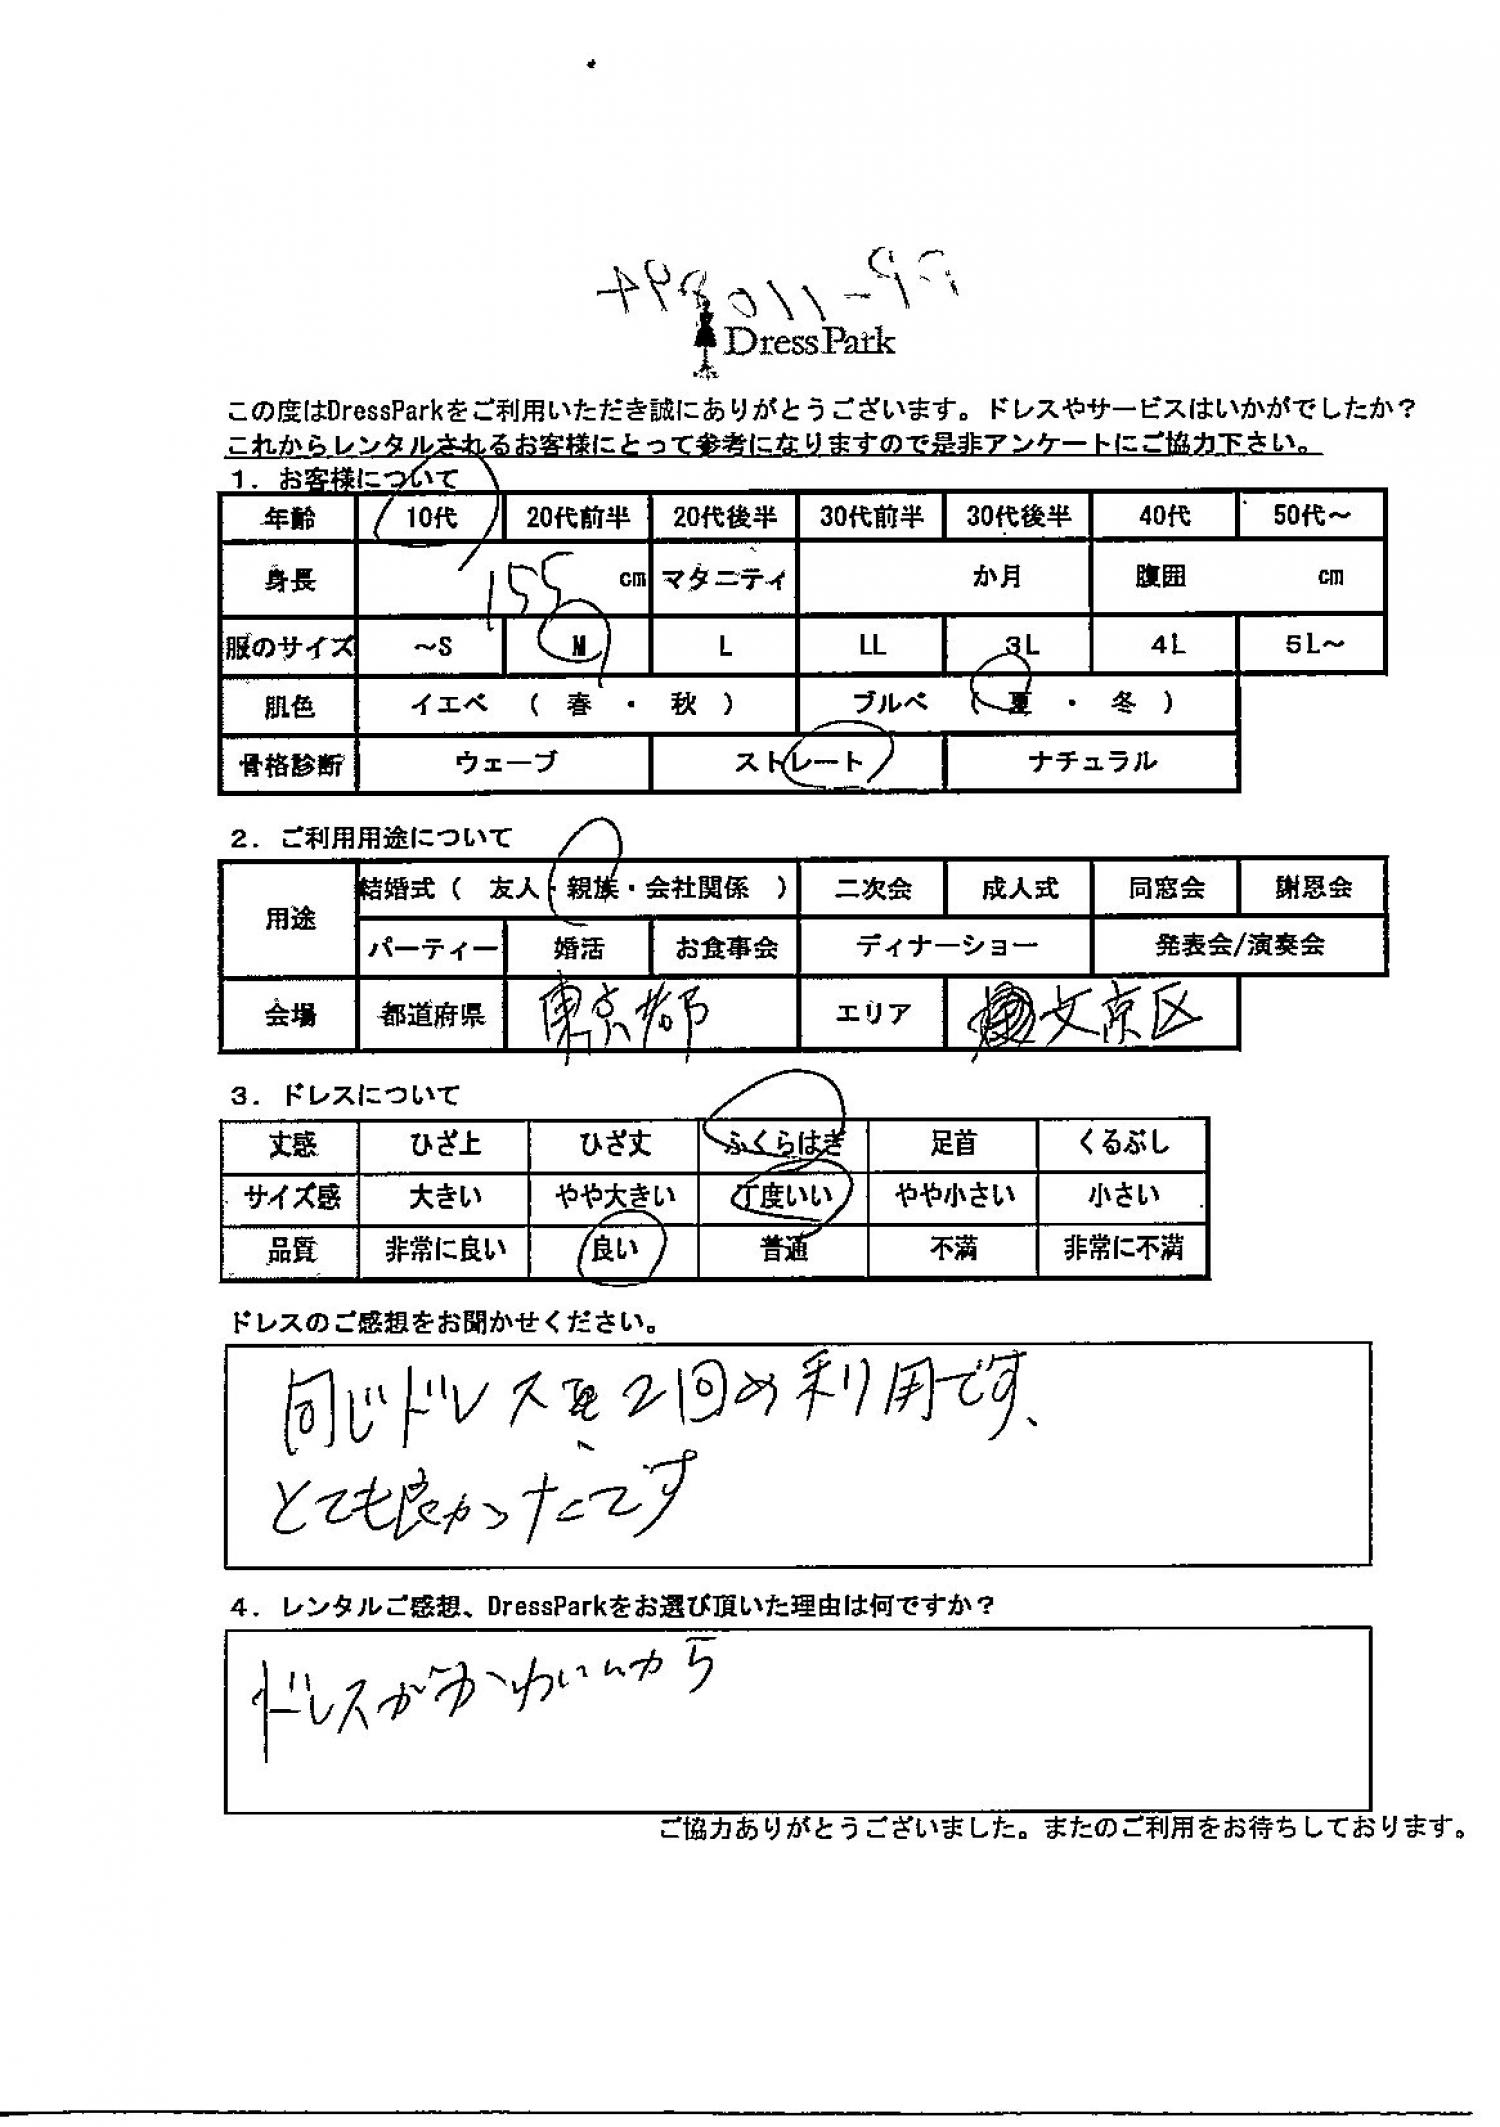 DressPark
この度はDressParkをご利用いただき誠にありがとうございます。ドレスやサービスはいかがでしたか？
これからレンタルされるお客様にとって参考になりますので是非アンケートにご協力下さい。
1. お客様について
年齢 10代 20代前半 20代後半 30代前半 30代後半 40代 50代～
身長 155 cm マタニティ か月 腹囲 cm
服のサイズ ～S M L LL 3L 4L 5L～
肌色 イエベ ( 春 ・ 秋 ) ブルベ ( 夏 ・ 冬 )
骨格診断 ウェーブ ストレート ナチュラル
2. ご利用用途について
用途 結婚式 ( 友人・親族・会社関係 ) 二次会 成人式 同窓会 謝恩会
パーティー 婚活 お食事会 ディナーショー 発表会/演奏会
会場 都道府県 東京都 エリア 文京区
3. ドレスについて
丈感 ひざ上 ひざ丈 ふくらはぎ 足首 くるぶし
サイズ感 大きい やや大きい 丁度いい やや小さい 小さい
品質 非常に良い 良い 普通 不満 非常に不満
ドレスのご感想をお聞かせください。
同じドレスを2回め利用です、
とても良かったです
4. レンタルご感想、DressParkをお選び頂いた理由は何ですか？
ドレスがかわいいから
ご協力ありがとうございました。またのご利用をお待ちしております。